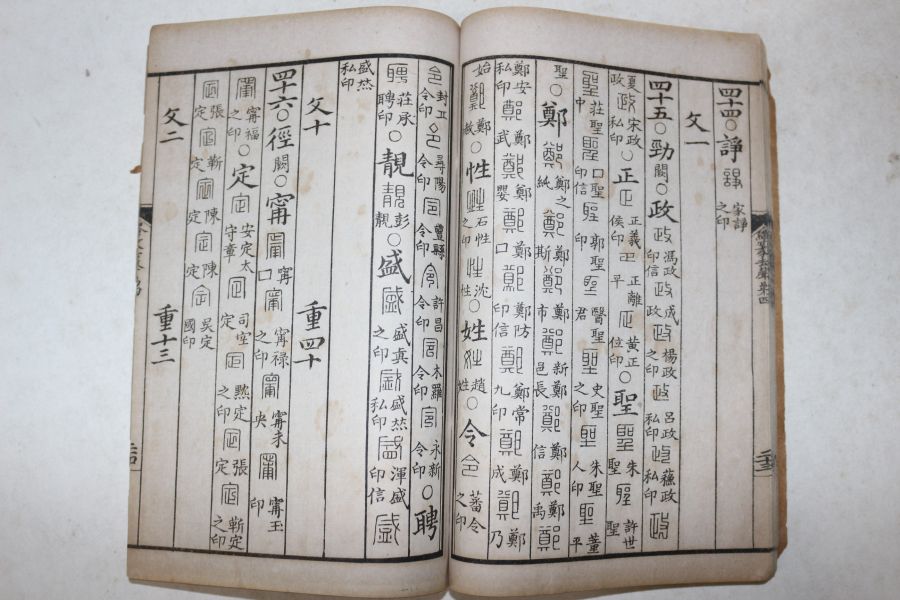 四十四○諍 家諍之印
文一
四十五○勁闕○政政馮政印信政成政政楊政之印政呂政私印政蘊政私印政
夏政政宋政私印○正正正義侯印正正離平正黃正位印○聖聖朱聖聖許世聖
聖莊聖中聖口聖印信聖郭聖聖醫聖君聖史聖之印聖朱聖人印聖董平
聖○鄭鄭鄭之紙鄭鄭斯鄭鄭市鄭新鄭邑長鄭鄭信鄭鄭禹鄭
鄭安私印鄭鄭武鄭鄭嬰鄭鄭口鄭鄭防印信鄭鄭常九印鄭鄭成鄭鄭乃
始鄭鄭赦○性性石性之印性沈性○姓姓趙姓○令令蕃令之印
令封丘令印令尋陽令印令豐縣令印令許昌令印令木羅令印令永新令印○聘
聘莊承聘印○靚靚彭靚○盛盛盛真之印盛盛烝私印盛渾盛印信盛
盛烝私印
文十 重四十
四十六○徑闕○甯甯甯口甯甯祿之印甯甯未央甯甯玉印
甯甯福之印○定定安定太守章定司空定定㸃定之印定張定定靳定之印
定張定定靳定定陳定定陳定定吴定國印
文二 重十三